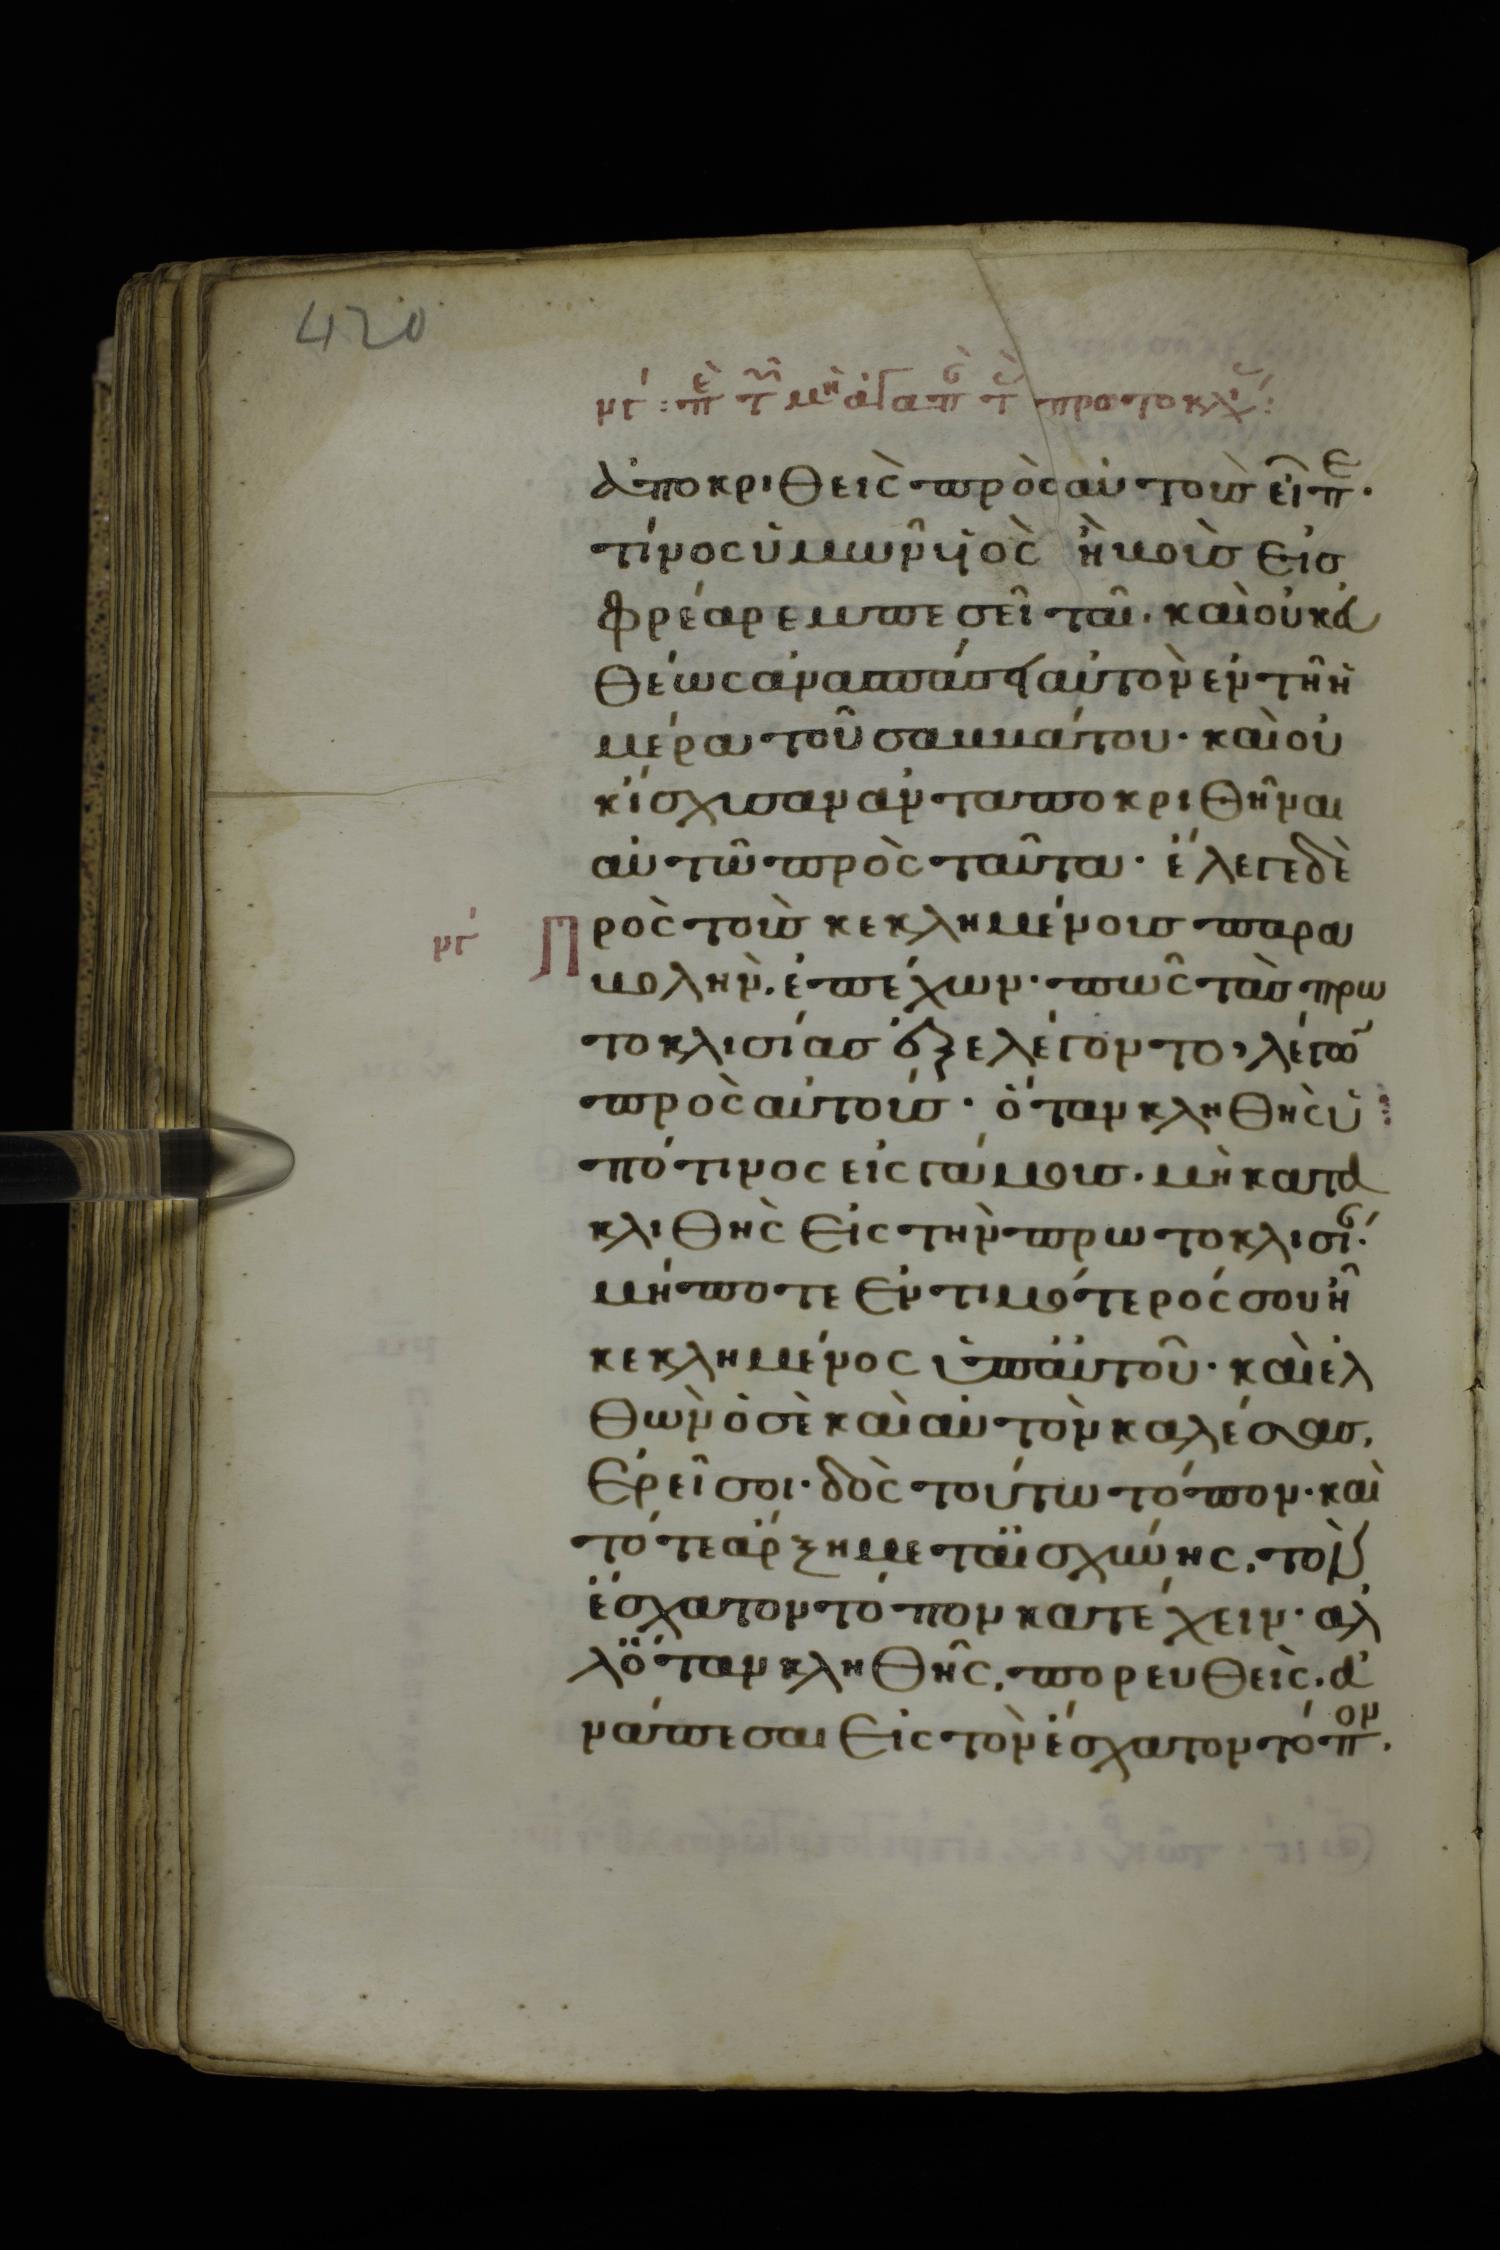 420
νγ : π τ μη ἀγαπ τ πρωτοκλ :
ἀποκριθεὶς πρὸς αὐτοὺς εἶπε·
τίνος ὑμῶν υἱὸς ἢ βοῦς εἰσ
φρέαρ ἐμπεσεῖται. καὶ οὐκ ἀ
θέως ἀνασπάσει αὐτὸν ἐν τῆ ἡ
μέρα τοῦ σαββάτου· καὶ οὐ
κ ἴσχυσαν ἀνταποκριθῆναι
αὐτῶ πρὸς ταῦτα· ἔλεγε δὲ
νγ Πρὸς τοὺς κεκλημένους παρα
βολὴν. ἐπέχων· πῶς τὰς πρω
τοκλισίας ἐξελέγοντο, λέγων
πρὸς αὐτούς· ὅταν κληθῆς ὑ
πό τινος εἰς γάμους. μὴ κατα
κλιθῆς εἰς τὴν πρωτοκλισίαν.
μήποτε ἐντιμότερός σου ἦ
κεκλημένος ὑπ αὐτοῦ· καὶ ἐλ
θὼν ὁ σὲ καὶ αὐτὸν καλέσας.
ἐρεῖ σοι· δὸς τούτω τόπον· καὶ
τότε ἄρξη μετ αἰσχύνης. τὸν
ἔσχατον τόπον κατέχειν· ἀλ
λ ὅταν κληθῆς. πορευθεὶς. ἀ
νάπεσαι εἰς τὸν ἔσχατον τόπον.